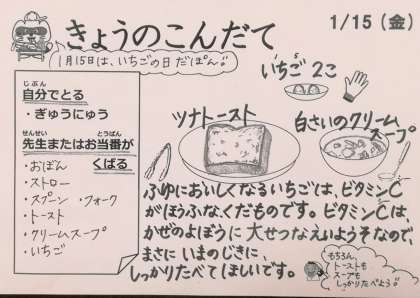 きょうのこんだて
1/15(金)
1月15日は、いちごの日だぽん!!
いちご2こ
じぶん
自分でとる
・ぎゅうにゅう
せんせい とうばん
先生またはお当番が
くばる
・おぼん
・ストロー
・スプーン・フォーク
・トースト
・クリームスープ
・いちご
ツナトースト
白さいのクリーム
スープ
ふゆにおいしくなるいちごは、ビタミンC
がほうふな、くだものです。ビタミンCは
かぜのよぼうに大せつなえいようそなので、
まさに いまのじきに、
しっかりたべてほしいです。
もちろん、
トーストも
スープも
しっかりたべよう!